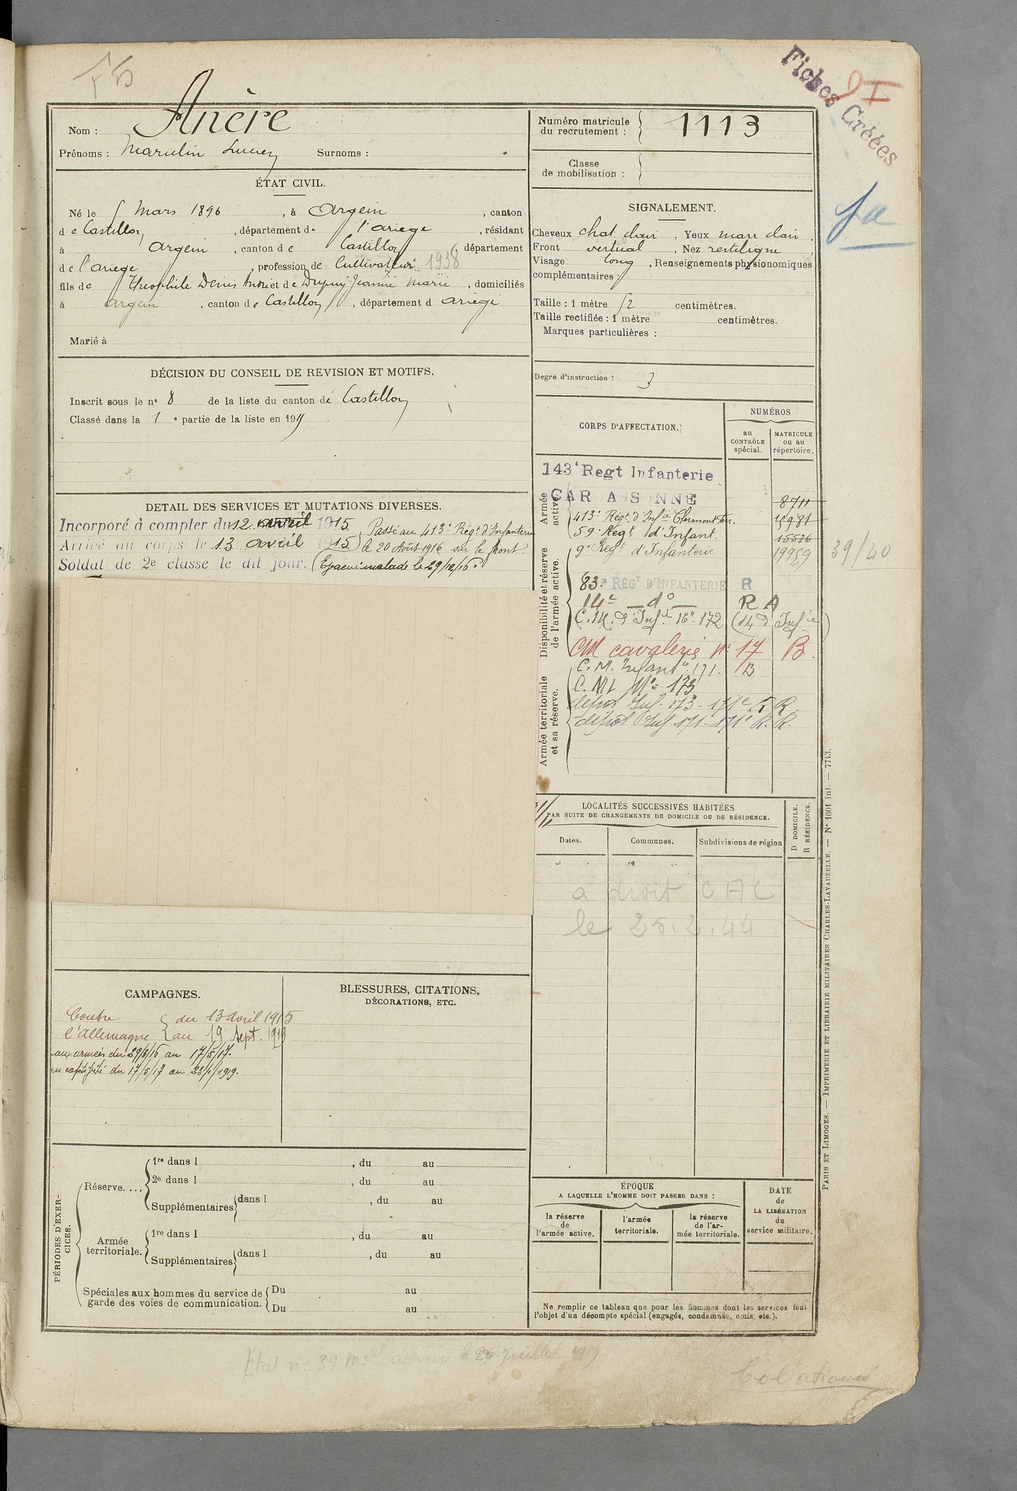 Fiches Créées
Nom : Anère
Prénoms : Surnoms :
Numéro matricule du recrutement : 1113
Classe de mobilisation :
ÉTAT CIVIL.
Né le 5 Mars 1896, à Argein, canton
de Castillon, département de l'Ariège, résidant
à Argein, canton de Castillon, département
de l'ariege, profession de Cultivateur 1938
fils de Théophile Denis André et de Dupuy Jeanne Marie, domiciliés
à argein, canton de Castillon, département d ariege
Marié à
SIGNALEMENT.
Cheveux chat clair, Yeux marr clair,
Front vertical, Nez rectiligne,
Visage long, Renseignements physionomiques
complémentaires :
Taille : 1 mètre 52 centimètres.
Taille rectifiée : 1 mètre centimètres.
Marques particulières :
Degré d'instruction : 3
DÉCISION DU CONSEIL DE REVISION ET MOTIFS.
Inscrit sous le nº 8 de la liste du canton de Castillon
Classé dans la 1e partie de la liste en 191
CORPS D'AFFECTATION.
NUMÉROS
au CONTRÔLE spécial.
MATRICULE ou au répertoire.
Armée active.
143e Regt Infanterie
CAR A S ONNE 8711
413e Régt d'Infie Clermont
59e Régt d'Infant. 15536
9e Régt d'Infanterie
39/40
Disponibilité et réserve de l'armée active.
83e RÉGT D'INFANTERIE R
14e _ do _ R A
C.M. d'Infie 16e 172 (14e d'Infie)
CM cavalerie Nº 17 B.
Armée territoriale et sa réserve.
C. M. Infant 171. B
C. M. Nº 173
dépôt Inf. 173 - 171e R R.
dépôt Inf 171 - 171e R. R.
DETAIL DES SERVICES ET MUTATIONS DIVERSES.
Incorporé à compter du 12 avril 1915
Arrivé au corps le 13 avril 1915
Soldat de 2e classe le dit jour.
Passé au 413e Régt d'Infanterie
le 20 Août 1916 sur le front
Evacué malade le 29/12/16.
LOCALITÉS SUCCESSIVES HABITÉES
PAR SUITE DE CHANGEMENTS DE DOMICILE OU DE RÉSIDENCE.
Dates. Communes. Subdivisions de région
D DOMICILE. R RÉSIDENCE.
a droit C A C
le 25.2.44
CAMPAGNES.
Contre l'Allemagne du 13 avril 1915
au 19 Sept. 1919
aux armées du 29/8/16 au 17/5/17.
en captivité du 17/5/17 au
BLESSURES, CITATIONS,
DÉCORATIONS, ETC.
PÉRIODES D'EXERCICES.
Réserve....
1re dans l , du au
2e dans l , du au
Supplémentaires dans l , du au
Armée territoriale.
1re dans l , du au
Supplémentaires dans l , du au
Spéciales aux hommes du service de garde des voies de communication.
Du au
Du au
ÉPOQUE
A LAQUELLE L'HOMME DOIT PASSER DANS :
la réserve de l'armée active.
l'armée territoriale.
la réserve de l'armée territoriale.
DATE de LA LIBÉRATION du service militaire.
Ne remplir ce tableau que pour les hommes dont les services font
l'objet d'un décompte spécial (engagés, condamnés, omis, etc.).
PARIS ET LIMOGES. — IMPRIMERIE ET LIBRAIRIE MILITAIRES CHARLES-LAVAUZELLE. — Nº 1001 int. — 7743.
Collationné